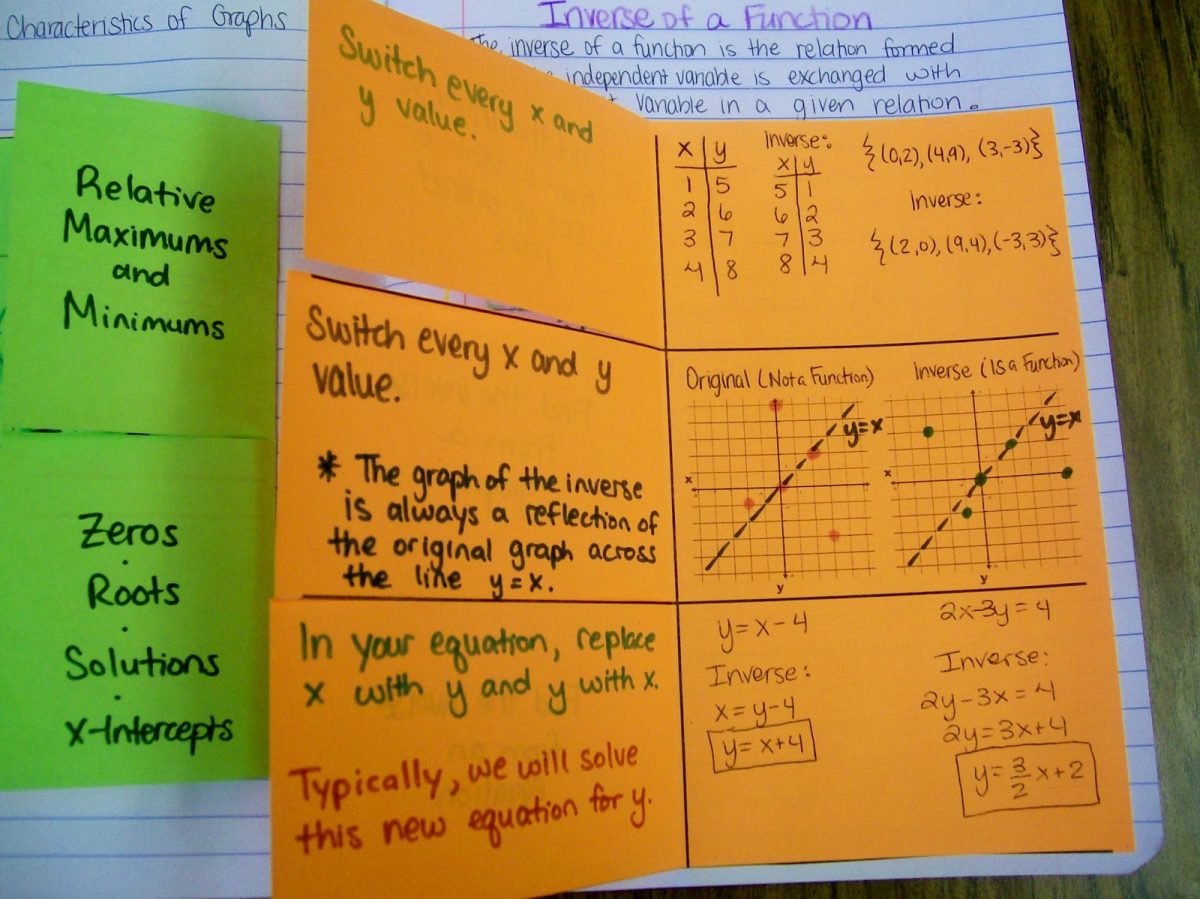 Characteristics of Graphs
Relative
Maximums
and
Minimums
Zeros
.
Roots
.
Solutions
.
x-Intercepts
Inverse of a Function
The inverse of a function is the relation formed
independent variable is exchanged with
variable in a given relation.
Switch every x and
y value.
x | y
1 | 5
2 | 6
3 | 7
4 | 8
Inverse:
x | y
5 | 1
6 | 2
7 | 3
8 | 4
{(0,2), (4,9), (3,-3)}
Inverse:
{(2,0), (9,4), (-3,3)}
Switch every x and y
value.
* The graph of the inverse
is always a reflection of
the original graph across
the line y=x.
Original (Not a Function)
y=x
x
y
Inverse (Is a Function)
y=x
x
y
In your equation, replace
x with y and y with x.
Typically, we will solve
this new equation for y.
y=x-4
Inverse:
x=y-4
y=x+4
2x-3y=4
Inverse:
2y-3x=4
2y=3x+4
y=3/2x+2